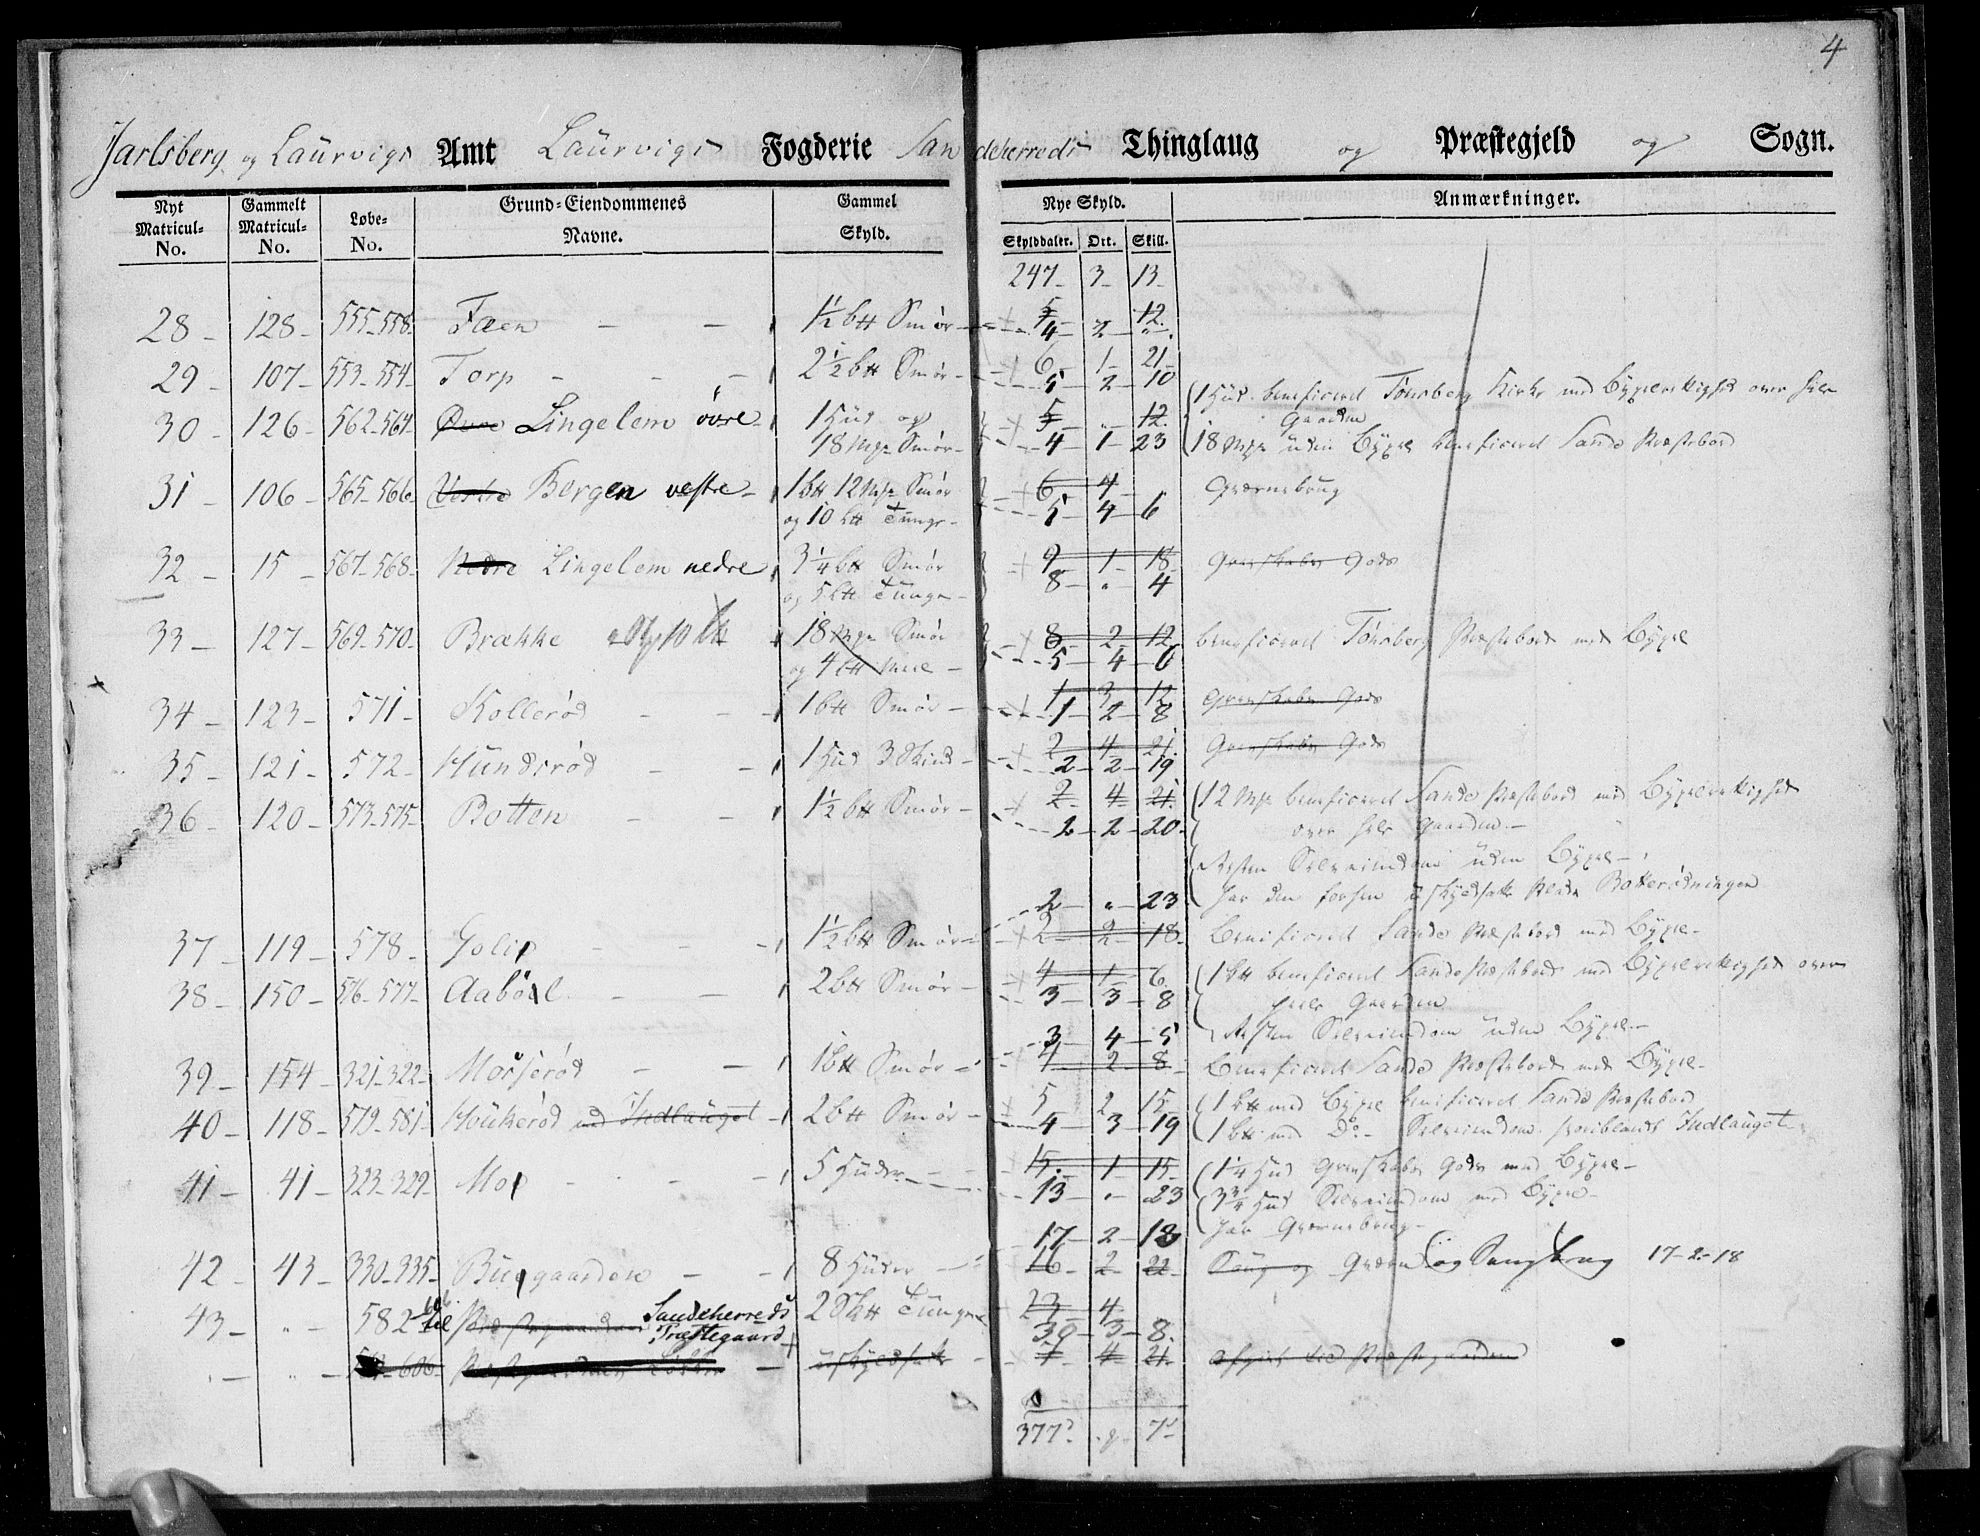 4
Jarlsberg og Laurvigs Amt Laurvigs Fogderie Sandeherreds Thinglaug og Præstegjeld og Sogn.
Nyt Matricul- No. Gammelt Matricul- No. Løbe- No. Grund-Eiendommenes Navne. Gammel Skyld. Nye Skyld. Anmærkninger.
Skylddaler. Ort. Skill.
247 - 3 - 13
5 12
28 - 128 - 555-558 Faen - - 1½ btt Smør - 4 - 2 - "
6 - 1 - 21
29 - 107 - 553-554 Torp - - - 2½ btt Smør - 5 - 2 - 10
1 Hud beneficeret Tønsberg Kirke med Bygselrettighed over hele
5 - " - 12 Gaarden
30 - 126 - 562-564 Øvre Lingelem övre 1 Hud og
18 Mrk Smør - 4 - 1 - 23 18 Mrk uden Bygsel beneficeret Sande Præstebord
31 - 106 - 565-566 Vestre Bergen vestre - 1 btt 12 Mrk Smør 6 - 4 - Qværnebrug
og 10 btt Tunge - 5 - 4 - 6
32 - 15 - 567-568 Nedre Lingelem nedre 3¼ btt Smør 9 - 1 - 18 Grevskabes Gods
og 5 btt Tunge - 8 - " - 4
33 - 127 - 569-570 Brække 18 Mrk Smør 8 - 2 - 12 beneficeret Tønsberg Præstebord med Bygsel
og 4 btt Meel - 5 - 4 - 6
1 - 3 - 12
34 - 123 - 571 - Kollerød - - 1 btt Smør - 1 - 2 - 8 Grevskabes Gods
2 - 4 - 21
35 - 121 - 572 - Hundsrød - - 1 Hud 3 Skind - 2 - 2 - 19 Grevskabes Gods
2 - 4 - 21 12 Mrk beneficeret Sande Præstebord med Bygselrettighed
36 - 120 - 573-575 Botten - - 1½ btt Smør - 2 - 2 - 20 over hele Gaarden -
Resten Selveiendom uden Bygsel -
2 - " - 23 har den forhen uskyldsatte Plads Botterødningen
37 - 119 - 578 - Golie - - - 1½ btt Smør - 2 - 2 - 18 Beneficeret Sande Præstebord med Bygsel -
4 - 1 - 6 1 btt beneficeret Sande Præstebord med Bygselrettighed over
38 - 150 - 576-577 Aaböel - - 2 btt Smør - 3 - 3 - 8 hele Gaarden
3 - 4 - 5 Resten Selveiendom uden Bygsel -
39 - 154 - 321-322 Moserød - - 1 btt Smør - 4 - 2 - 8 Beneficeret Sande Præstebord med Bygsel -
5 2 15 1 btt med Bygsel beneficeret Sande Præstebord
40 - 118 - 579-581 Houkerød med Indlauget - 2 btt Smør - 4 - 3 - 19 1 btt med Do - Selveiendom hvoriblandt Indlauget
15 - 1 - 15 1¼ Hud Grevskabes Gods med Bygsel -
41 - 41 - 323-329 Moe - - - 5 Huder - 13 - " - 23 3¾ Hud Selveiendom med Bygsel -
17 - 2 - 18 har Qværnebrug -
42 - 43 - 330-335 Buegaarden - - 8 Huder - 16 - 2 - 22 Saug og Qværn og Saugbrug 17-2-18
43 - " - 582 til 606 Præstegaarden Sandeherreds Præstegaard 2 Sktt Tunge 23 - 4
39 - 3 - 8
" - " - 606 Præstegaardens uskyldsat - 7 - 4 - 21 afgivet til Præstegaarden
377 - 7